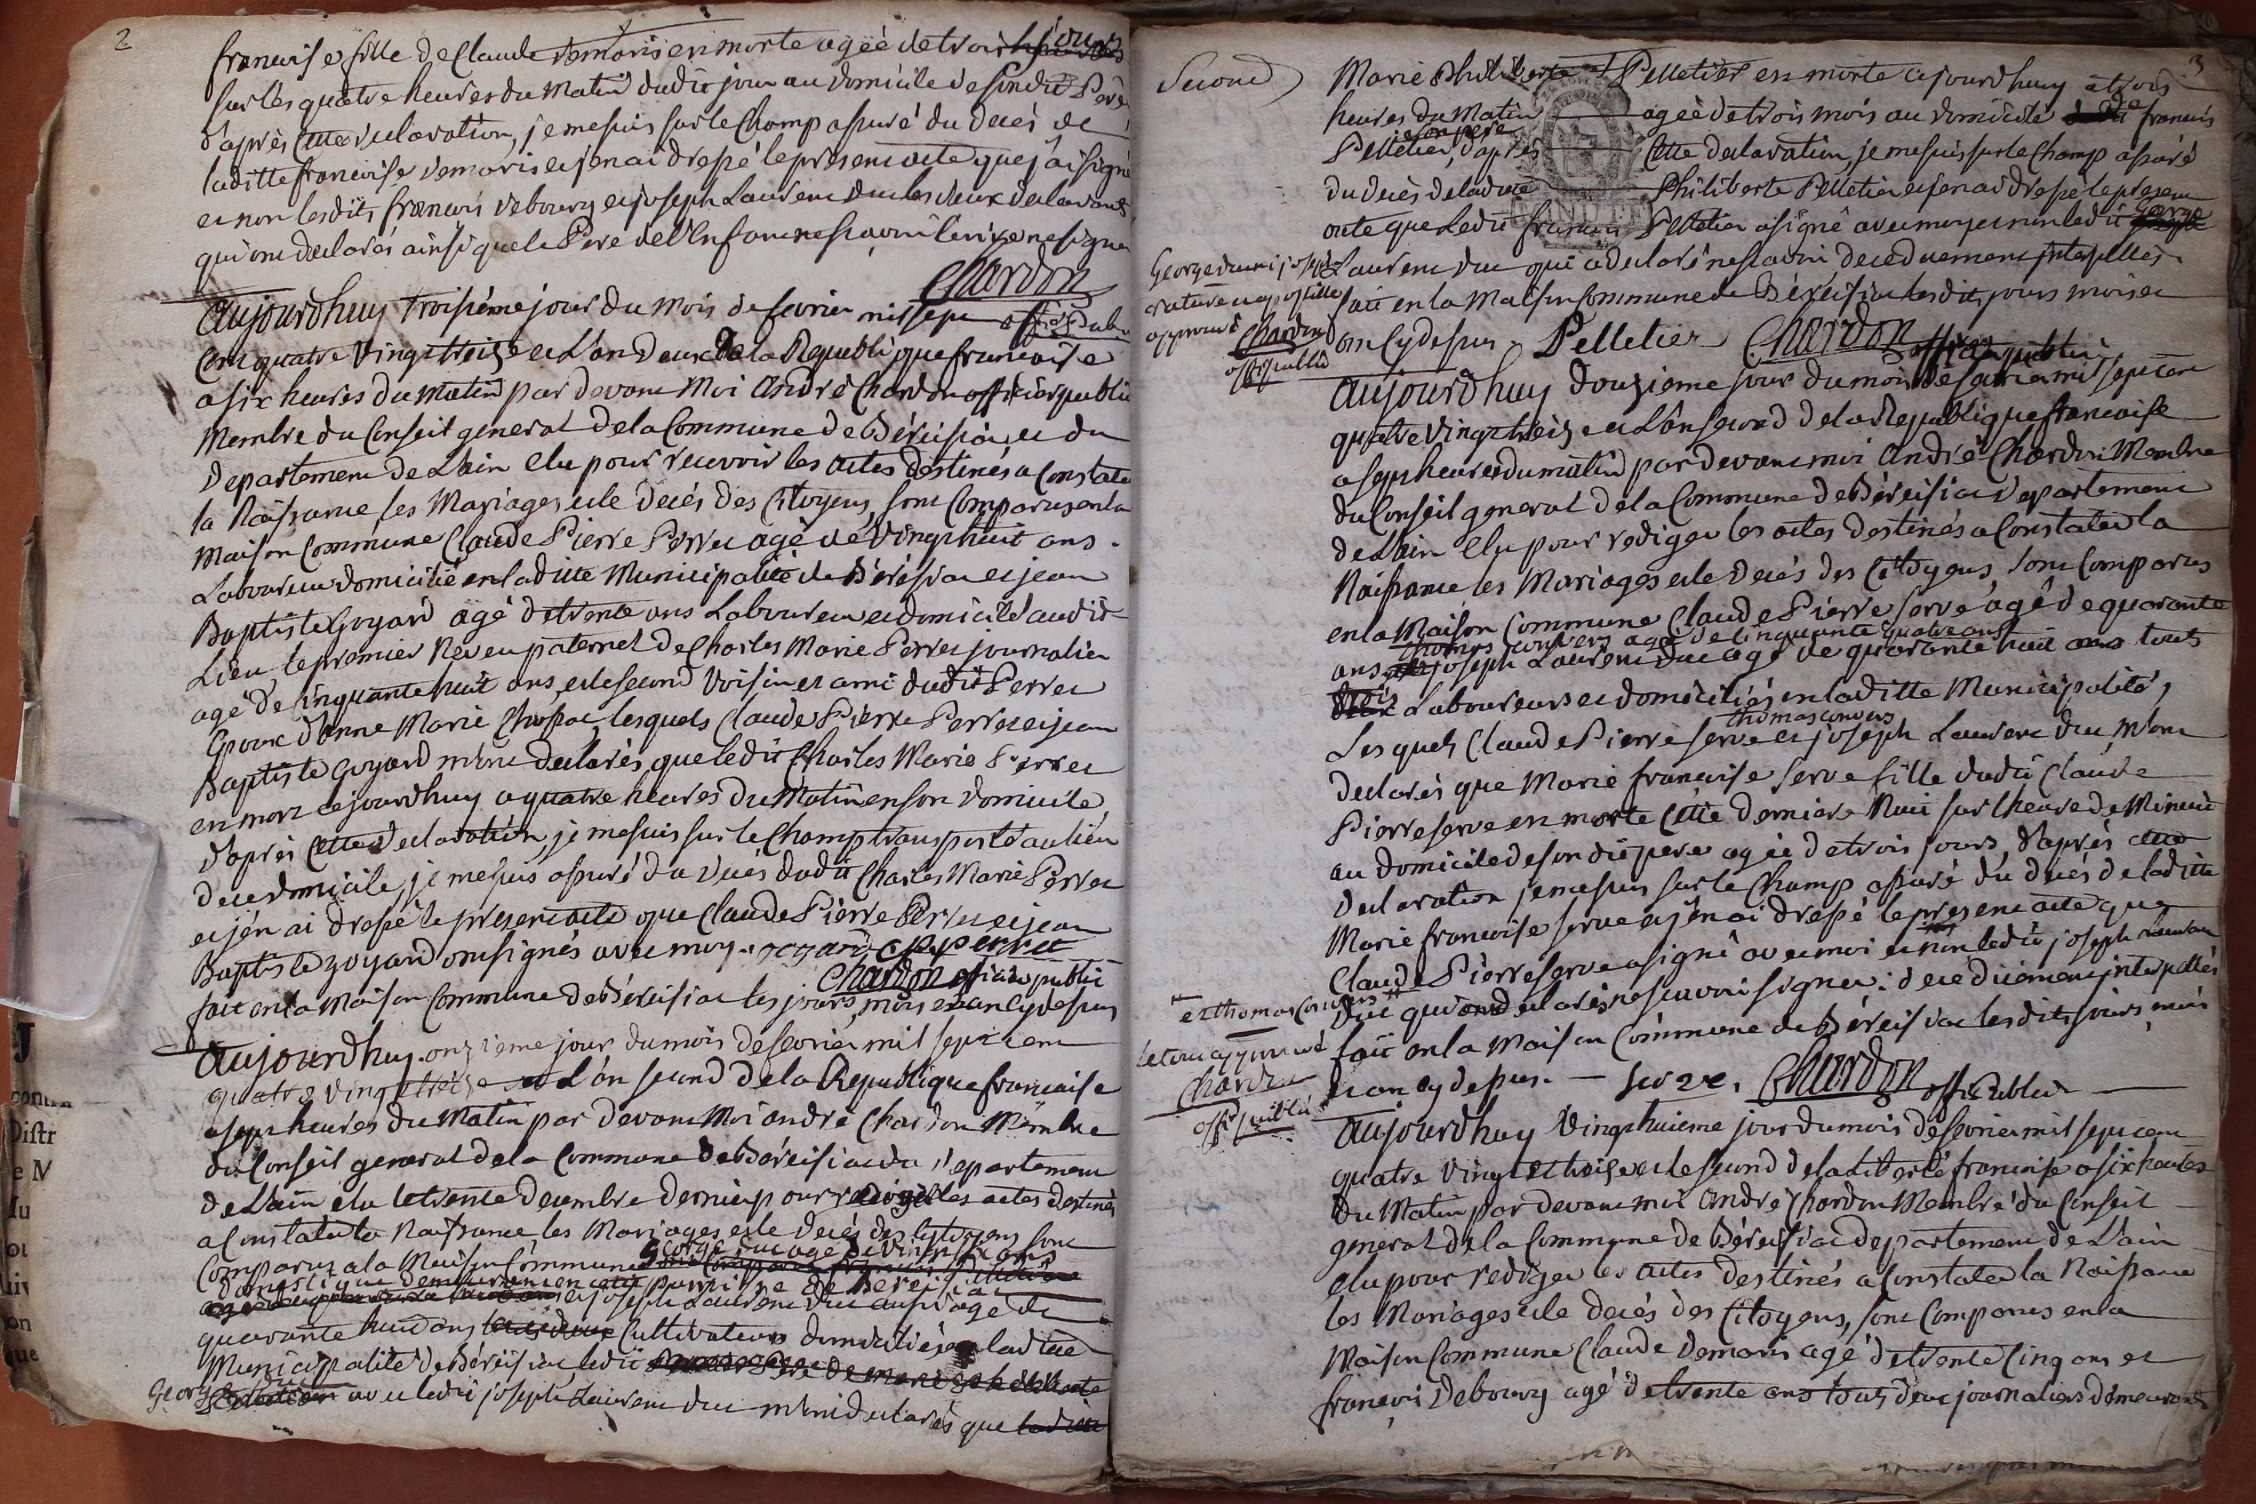 2
francoise fille de Claude Demaris en morte ageé de trois
sur les quatre heures du Matin dudit jour au domicile de sondit Pere
d'aprés cette declaration, je me suis sur le Champ assuré du decés de
laditte francoise demaris et j'en ai dressé le present acte que j'ai signé
et non lesdits francois debourg et joseph Laurent duc les deux declarants
qui ont declarés ainsi que le Pere de l'enfant ne scavoir ecrire ne signer
Chardon
officier Public
aujourdhuy troisiéme jour du mois de fevrier mil sept
cent quatre vingt treize et L'an deux de la Republique francoise
a six heures du matin par devant Moi André Chardon officier public
Membre du Conseil general de la Commune de Béreisia, et du
Departement de L'ain elu pour recevoir les actes destinés a Constater
la Naissance, les Mariages et le decés des Citoyens, sont Comparus en la
maison Commune Claude Pierre Perret agé de vingt huit ans
Laboureur domicilié en laditte Municipalité de Béreisia et jean
Baptiste Goyard agé de trente ans Laboureur et domicilé audit
Lieu, le premier Neveu paternel de Charles Marie Perret journalier
agé de cinquante huit ans, et le second voisin et ami dudit Perret
Epoux d'anne Marie Chossat, lesquels Claude Pierre Perret et jean
Baptiste Goyard m'ont declarés que ledit Charles Marie Perret
en mort cejourdhuy a quatre heures du Matin en son domicile,
d'après cette declaration, je me suis sur le Champ transporté au lieu
de ce domicile, je me suis assuré du decés dudit Charles Marie Perret
et j'en ai drossé le present acte que Claude Pierre Perret et jean
Baptiste goyard ont signés avec moy. goyard C p perret
Chardon officier public
fait en la Maison Commune de Béreisia les jours, mois et an cy dessus
aujourdhuy onzieme jour du mois de fevrier mil sept cent
quatre vingt treize et L'an second de la Republique francaise
a sept heures du Matin par devant Moi andré Chardon Membre
du Conseil general de la Commune de Béreisia du departement
de L'ain elu le trente decembre dernier pour rediger les actes destinés
a Constater la Naissance, les Mariages et le decés des Cytoyens sont
Comparus a la Maison Commune
George duc agé de vingt six ans
domestique demeurant en cette parroisse de Bereisia
et joseph Laurent duc aussi agé de
quarante huit ans Cultivateurs domiciliés en laditte
Municipalité de Béreisia, ledit
George duc avec ledit joseph Laurent duc m'ont declarés que
3
Second
Marie Philiberte Pelletier en morte cejourdhuy a trois
heures du Matin agée de trois mois au domicile de francois
Pelletier, son pere d'aprés Cette declaration, je me suis sur le Champ assuré
du decés de ladite Philiberte Pelletier et j'en ai drossé le present
acte que Ledit francois Pelletier a signé avec moy et non ledit George
Laurent duc qui a declaré ne scavoir de ce duement interpellés
fait en la Maison Commune de Béreisia lesdits jours mois et
an cy dessus. Pelletier Chardon
officier public
George duc ni joseph
rature et apostille
approuvé
Chardon
off. public
aujourdhuy douzieme jour du mois de fevrier mil sept cent
quatre vingt treize et L'an second de la Republique francoise
a sept heures du matin par devant moi André Chardon Membre
du Conseil general de la Commune de Béreisia departement
de L'ain elu pour rediger les actes destinés a Constater la
Naissance les Mariages et le decés des Citoyens, sont Comparus
en la Maison Commune Claude Pierre serve agé de quarante
thomas convers agé de cinquante quatre ans
ans joseph Laurent duc agé de quarante huit ans touts
trois Laboureurs et domiciliés en laditte Municipalité,
thomas convers
Lesquels Claude Pierre serve et joseph Laurent duc m'ont
declarés que Marie francoise serve fille dudit Claude
Pierre serve en morte cette derniere Nuit sur l'heure de Minuit
au domicile de son dit pere agée de trois jours, d'aprés cette
declaration je me suis sur le Champ assuré du decés de laditte
Marie francoise serve et j'en ai drossé le present acte que
Claude Pierre serve a signé avec moi et non ledit joseph Laurent
duc qui ont declarés ne scavoir signer: de ce duement interpellés
et thomas Convers
fait en la Maison Commune de Béreisia lesdits jours, mois
et an cy dessus. — serve. Chardon off. Public
approuvé
Chardon
off. public
aujourdhuy vingt huitieme jour du mois de fevrier mil sept cent
quatre vingt et treize et le second de la liberté francoise a six heures
du Matin par devant moi andré Chardon Membre du Conseil
general de la Commune de Béreisia departement de L'ain
elu pour rediger les actes destinés a Constater la Naissance
les Mariages et le decés des Citoyens, sont Comparus en la
Maison Commune Claude Demaris agé de trente Cinq ans et
francois Debourg agé de trente ans touts deux journaliers demeurants